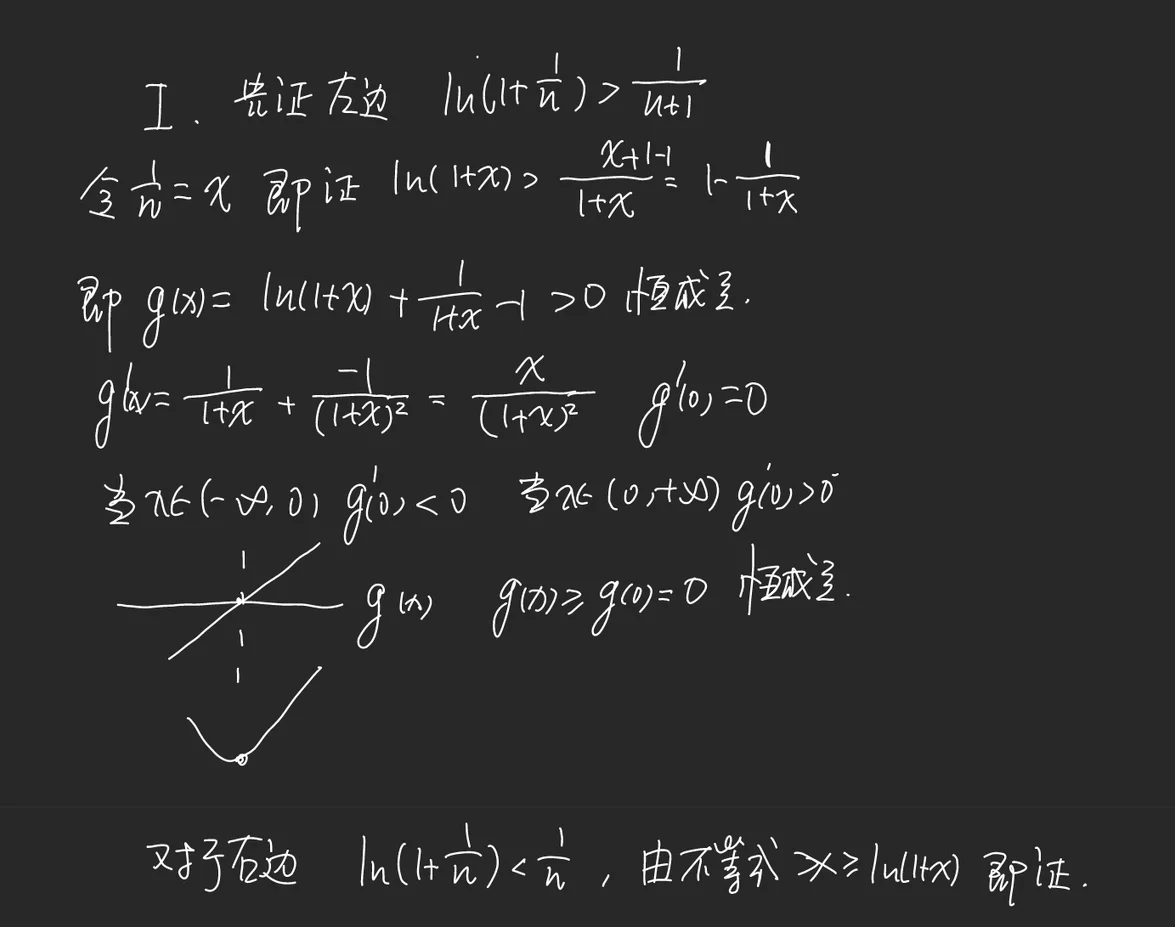 I. 先证左边 ln(1+1/n) > 1/(n+1)
令 1/n = x 即证 ln(1+x) > (x+1-1)/(1+x) = 1 - 1/(1+x)
即 g(x) = ln(1+x) + 1/(1+x) - 1 > 0 恒成立.
g'(x) = 1/(1+x) + (-1)/(1+x)² = x/(1+x)² g'(0) = 0
当 x∈(-∞,0) g'(0) < 0 当 x∈(0,+∞) g'(0) > 0
g(x) g(x) ≥ g(0) = 0 恒成立.
对于右边 ln(1+1/n) < 1/n , 由不等式 x ≥ ln(1+x) 即证.